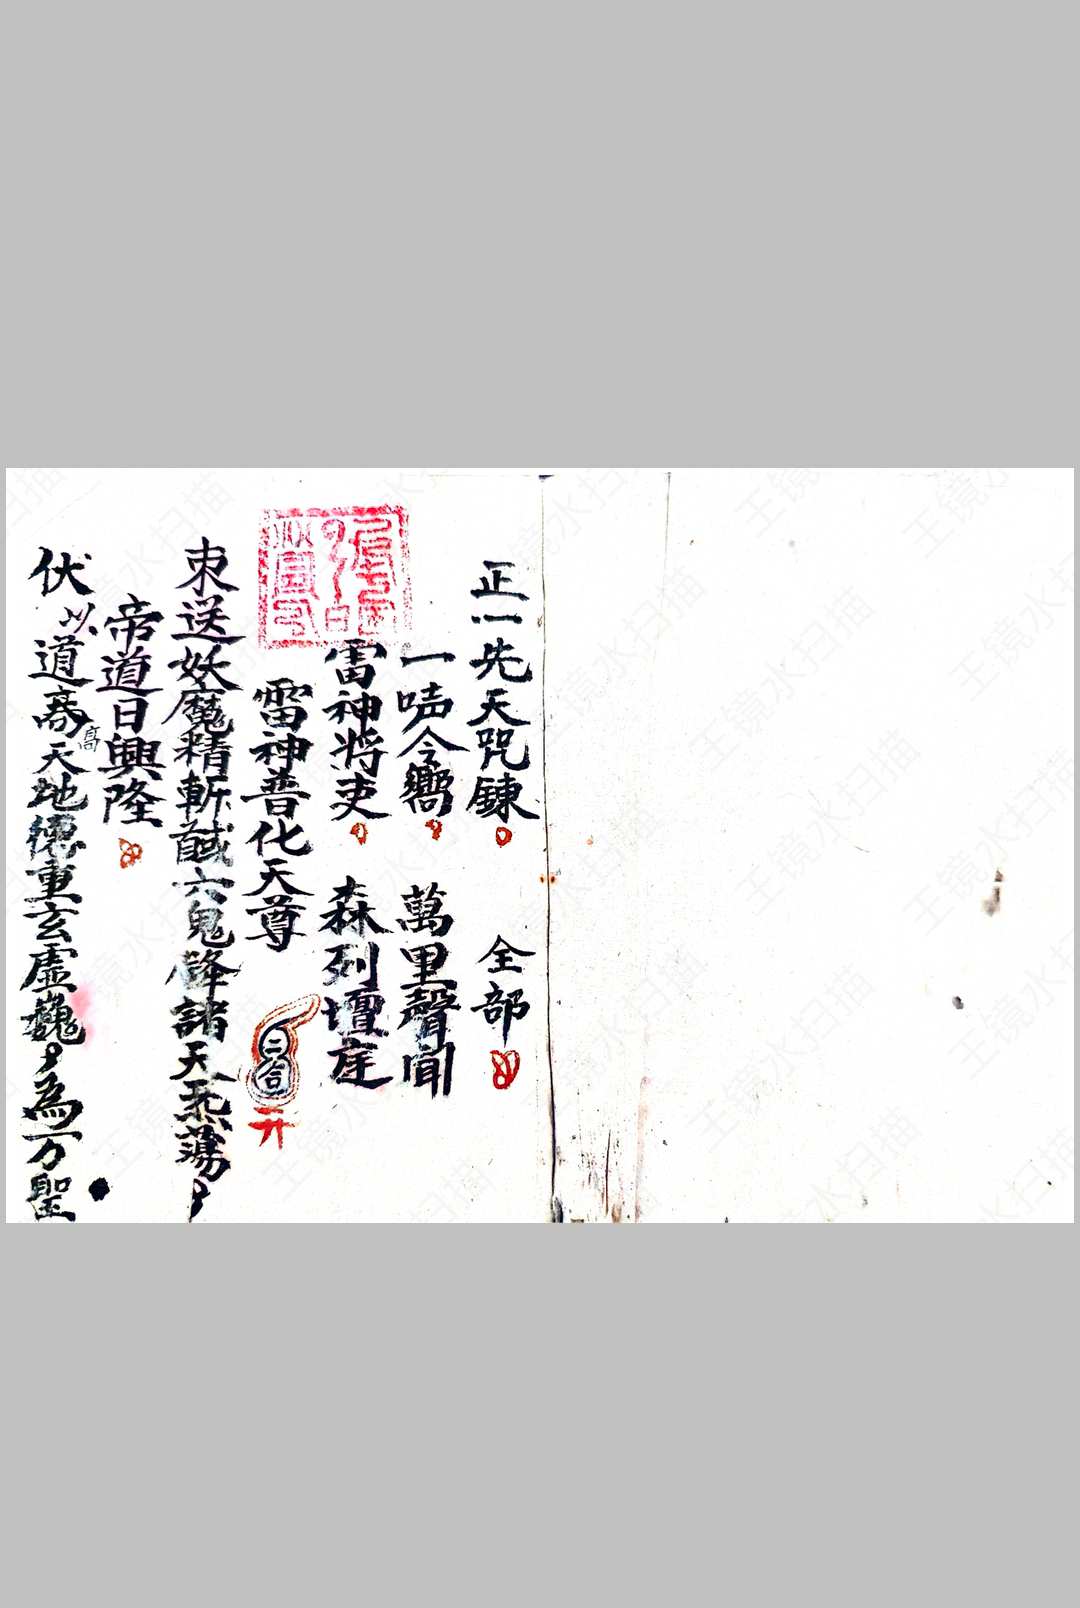 正一先天咒錬　全部
一㖓令嚮　萬里聲聞
雷神将吏　森列壇庭
雷神普化天尊
二合
束送妖魔精斬馘六鬼鋒諸天炁蕩〻
帝道日興隆
伏以道髙高天地德重玄虛巍〻為万聖
王镜水扫描